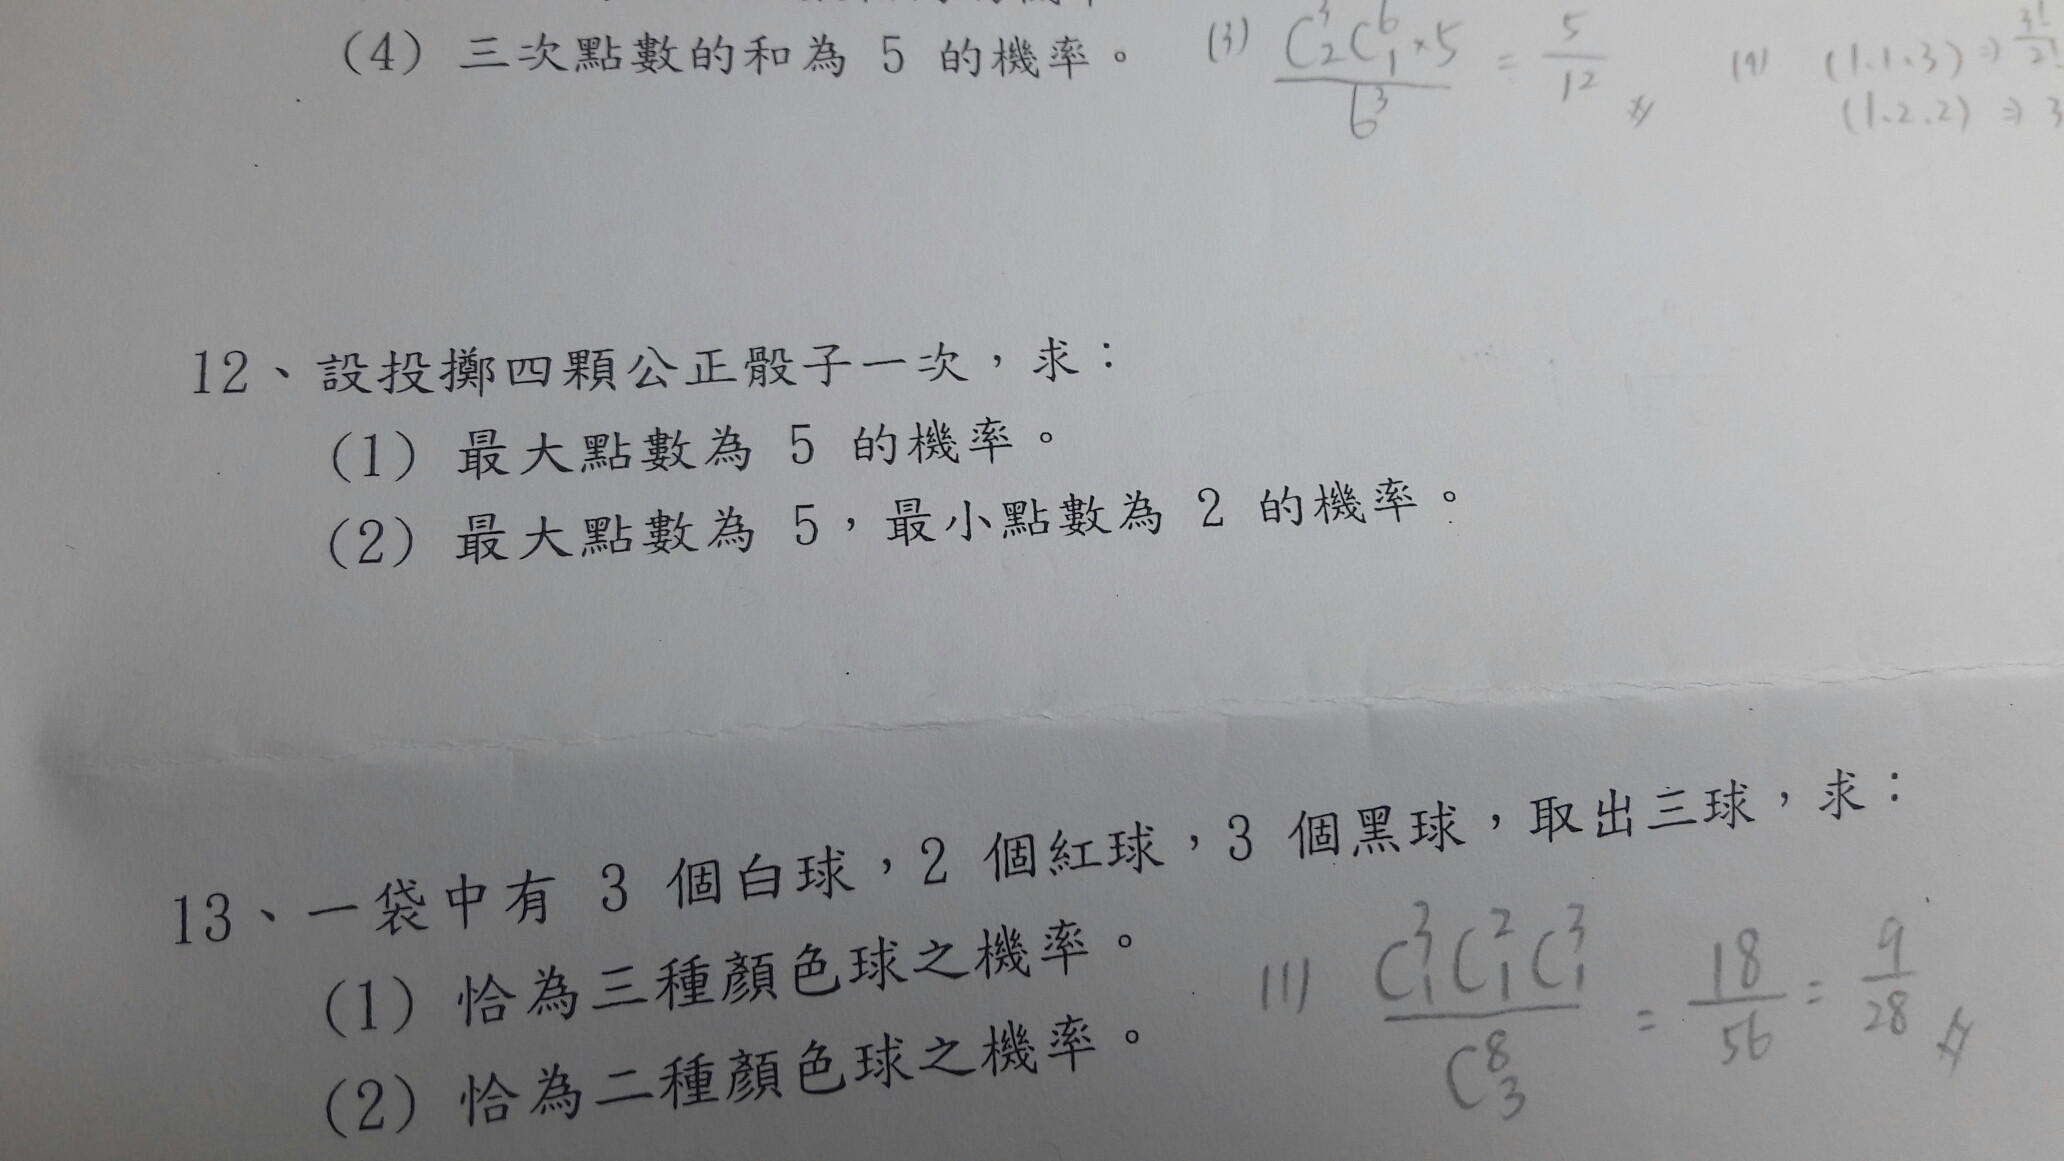 (4) 三次點數的和為 5 的機率。
(3) C³₂C⁶₁×5 / 6³ = 5/12
(4) (1、1、3) ⇒ 3!/2!
(1、2、2) ⇒ 3
12、設投擲四顆公正骰子一次，求：
(1) 最大點數為 5 的機率。
(2) 最大點數為 5，最小點數為 2 的機率。
13、一袋中有 3 個白球，2 個紅球，3 個黑球，取出三球，求：
(1) 恰為三種顏色球之機率。
(1) C³₁C²₁C³₁ / C⁸₃ = 18/56 = 9/28
(2) 恰為二種顏色球之機率。